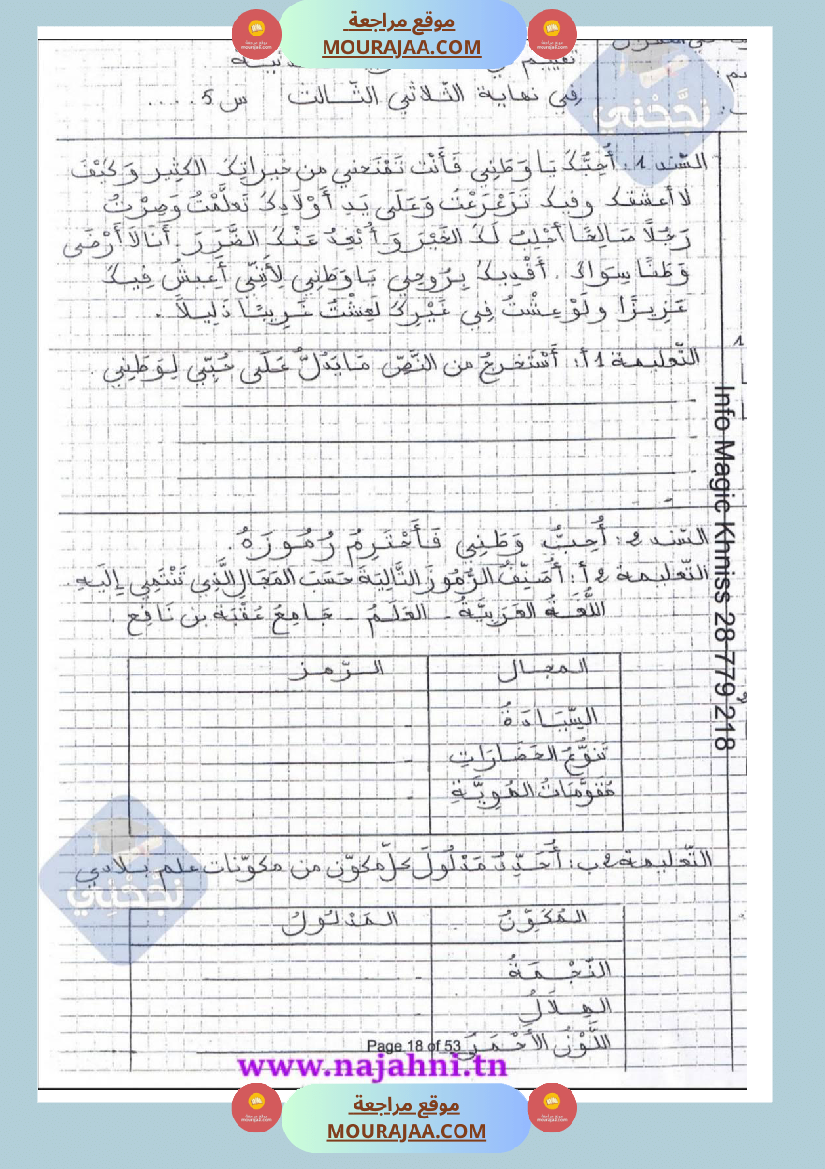 موقع مراجعة
MOURAJAA.COM
نجّحْني
في نهاية الثّلاثي الثّالث س 5 ....
السّند 1: أُحِبُّكَ يَا وَطَنِي فَأَنْتَ تَمْنَحُنِي من خيراتِكَ الكثِير وَكَيْفَ
لا أعشقك وفيك تَرَعْرَعْتُ وَعَلَى يَدِ أَوْلَادِكَ تَعَلَّمْتُ وَصِرْتُ
رَجُلًا صَالِحًا أجْلِبُ لَكَ الخَيْرَ وَ أُبْعِدُ عَنْكَ الضَّرَرَ. أَنَا لَا أَرْضَى
وَطَنًا سِوَاكَ. أَفْدِيكَ بِرُوحِي يَا وَطَنِي لِأَنَّنِي أَعِيشُ فِيكَ
عَزِيزًا ولَوْ عِشْتُ فِي غَيْرِكَ لَعِشْتُ غَرِيبًا ذَلِيلًا.
التّعليمة 1 أ: أَسْتَخرِجُ من النَّصِّ مَا يَدُلُّ عَلَى حُبِّي لِوَطَنِي.
السّند 2: أُحِبُّ وَطَنِي فَأَحْتَرِمُ رُمُوزَهُ.
التّعليمة 2 أ: أُصَنِّفُ الرُّمُوزَ التَّالِيَةَ حَسَبَ المَجَالِ الَّذِي تَنْتَمِي إِلَيهِ.
اللُّغَةُ العَرَبِيَّةُ - العَلَمُ - جَامِعُ عُقْبَة بن نَافِع
المجال الرّمز
السِّيَادَةُ
تَنَوُّعُ الحَضَارَاتِ
مُقَوِّمَاتُ الهُوِيَّةِ
التّعليمة 2 ب: أُحَدِّدُ مَدْلُولَ كلّ مكوّن من مكوّنات علم بلادي
المُكَوِّنُ المَدْلُولُ
النّجْمَةُ
الهِلَالُ
اللَّوْنُ الأَحْمَرُ
Info Magic Khniss 28 779 218
نجّحْني
Page 18 of 53
www.najahni.tn
موقع مراجعة
MOURAJAA.COM